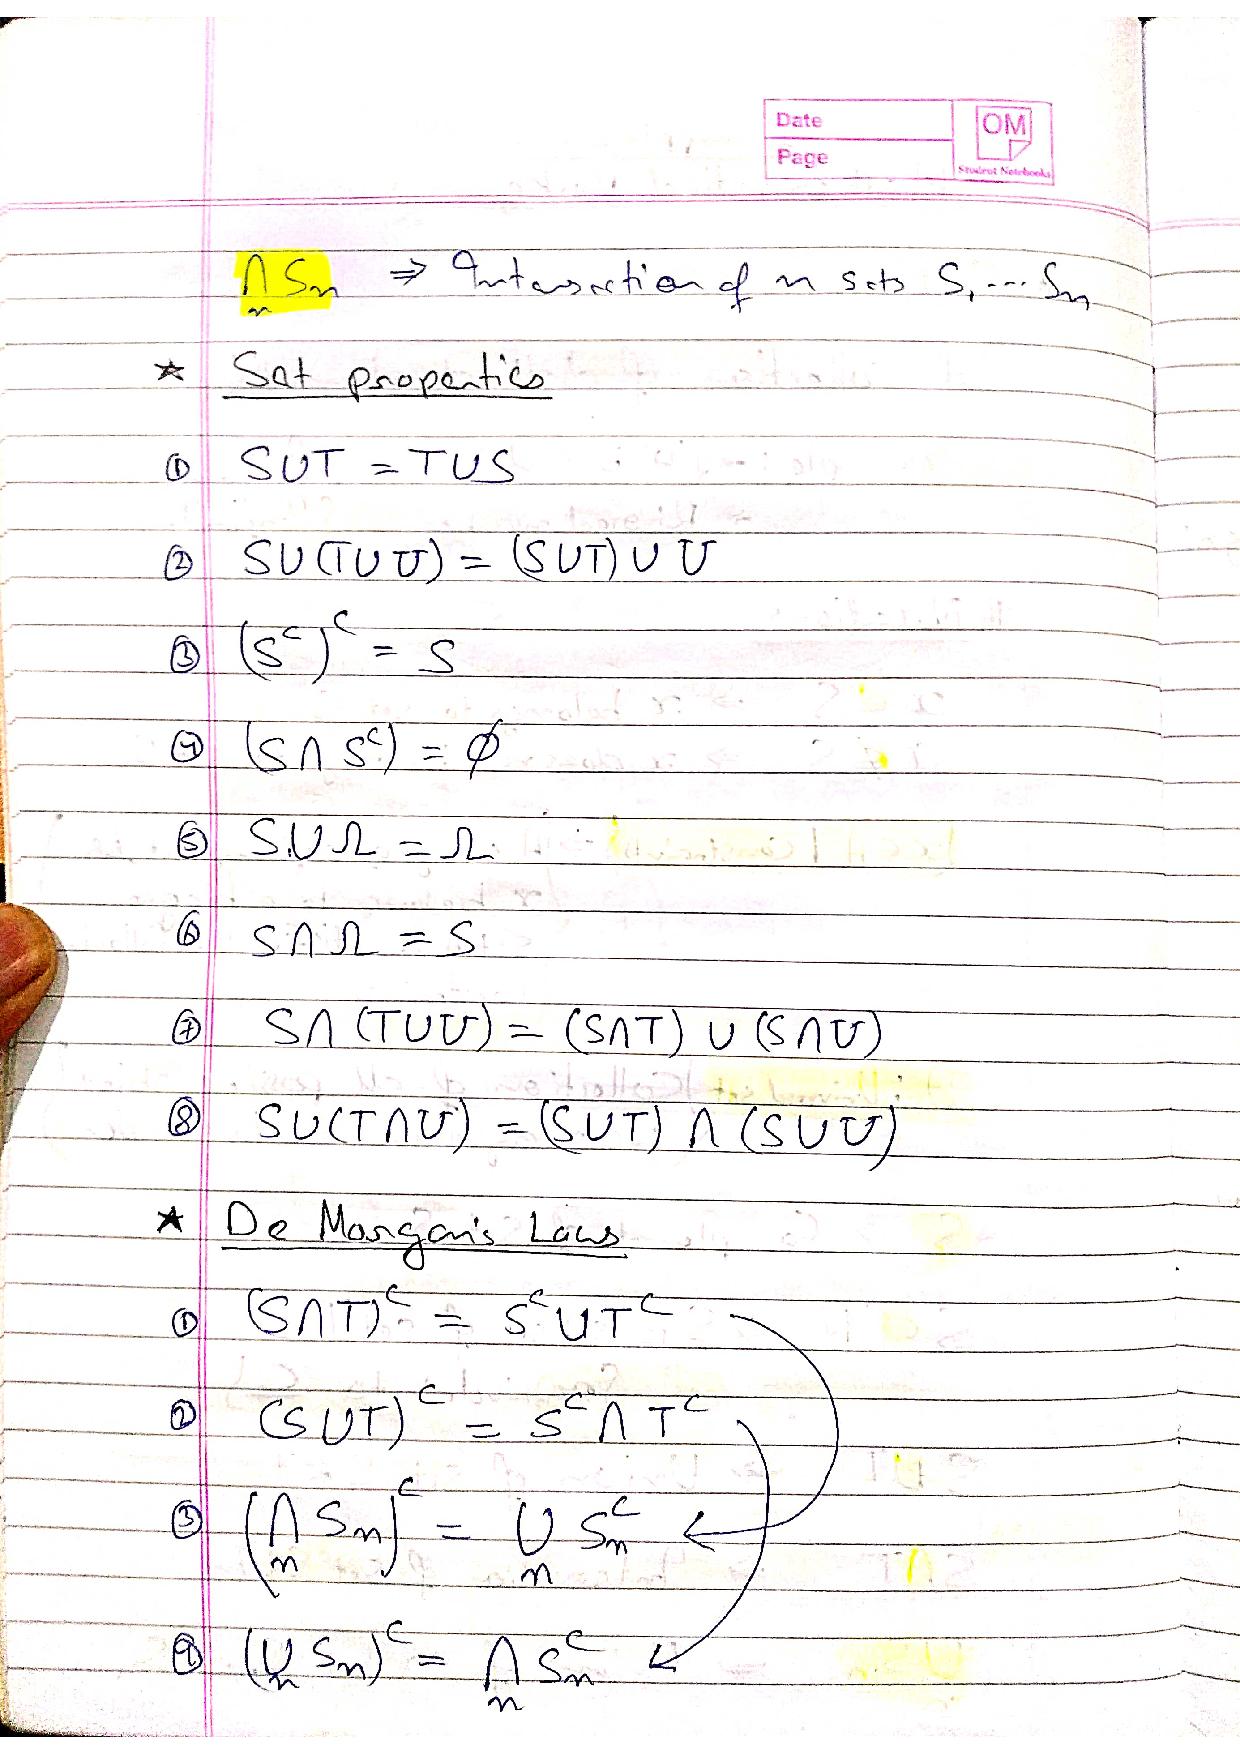 Date
Page
OM
Student Notebooks
⋂ₙ Sₙ ⇒ Intersection of n sets S₁ ... Sₙ
★ Set properties
① S∪T = T∪S
② S∪(T∪U) = (S∪T)∪U
③ (Sᶜ)ᶜ = S
④ (S∩Sᶜ) = ∅
⑤ S∪Ω = Ω
⑥ S∩Ω = S
⑦ S∩(T∪U) = (S∩T)∪(S∩U)
⑧ S∪(T∩U) = (S∪T)∩(S∪U)
★ De Morgan's Laws
① (S∩T)ᶜ = Sᶜ∪Tᶜ
② (S∪T)ᶜ = Sᶜ∩Tᶜ
③ (⋂ₙ Sₙ)ᶜ = ⋃ₙ Sₙᶜ
④ (⋃ₙ Sₙ)ᶜ = ⋂ₙ Sₙᶜ